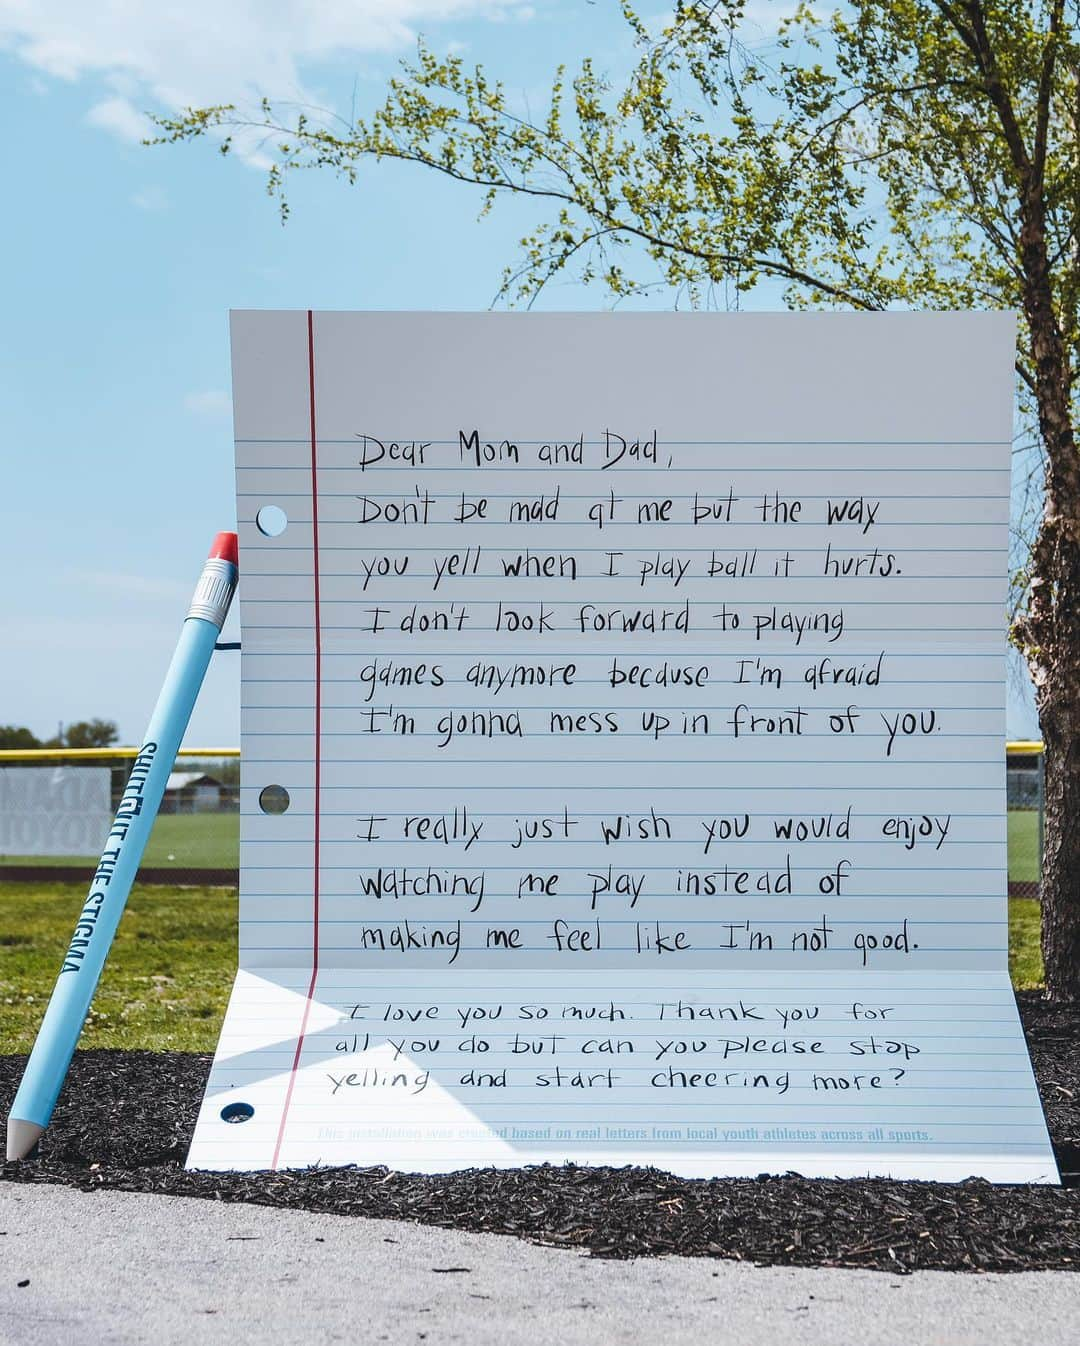 Dear Mom and Dad,
Don't be mad at me but the way
you yell when I play ball it hurts.
I don't look forward to playing
games anymore because I'm afraid
I'm gonna mess up in front of you.
I really just wish you would enjoy
watching me play instead of
making me feel like I'm not good.
I love you so much. Thank you for
all you do but can you please stop
yelling and start cheering more?
This installation was created based on real letters from local youth athletes across all sports.
SHUTOUT THE STIGMA